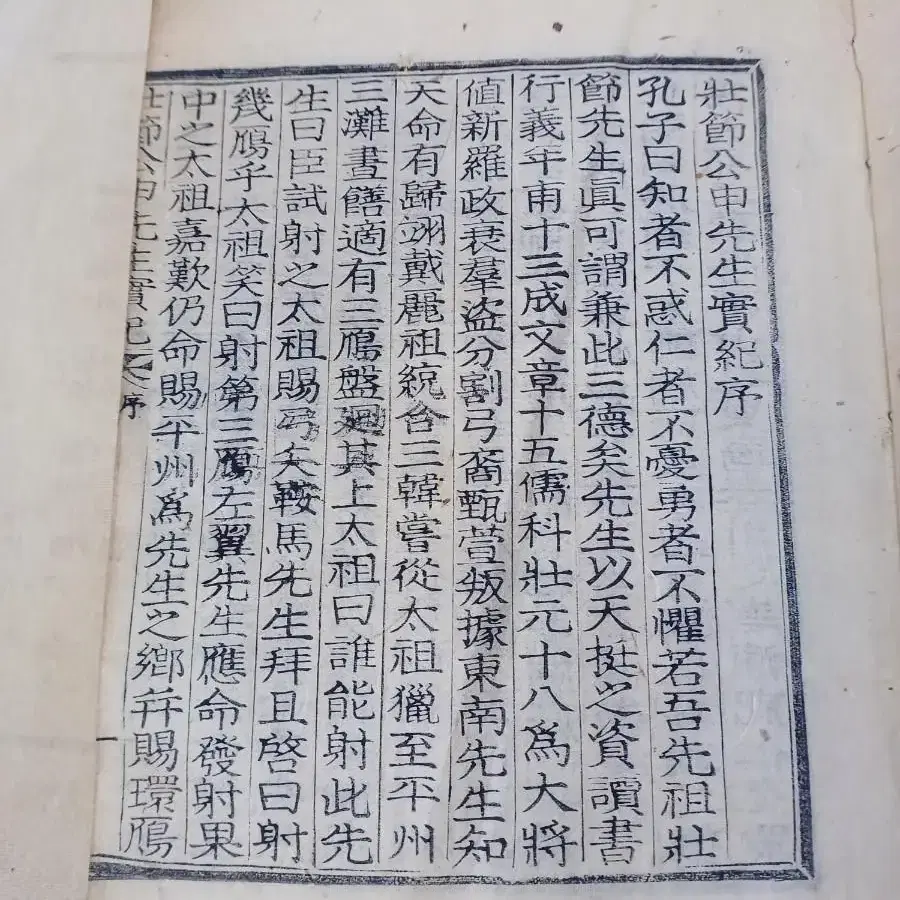 壯節公申先生實紀序
孔子曰知者不惑仁者不憂勇者不懼若吾先祖壯
節先生眞可謂兼此三德矣先生以天挺之資讀書
行義年甫十三成文章十五儒科壯元十八爲大將
値新羅政衰羣盜分割弓裔甄萱叛據東南先生知
天命有歸翊戴麗祖統合三韓嘗從太祖獵至平州
三灘晝饍適有三鴈盤廻其上太祖曰誰能射此先
生曰臣試射之太祖賜弓矢鞍馬先生拜且啓曰射
幾鴈乎太祖笑曰射第三鴈左翼先生應命發射果
中之太祖嘉歎仍命賜平州爲先生之鄕幷賜環鴈
壯節公申先生實紀 序 一